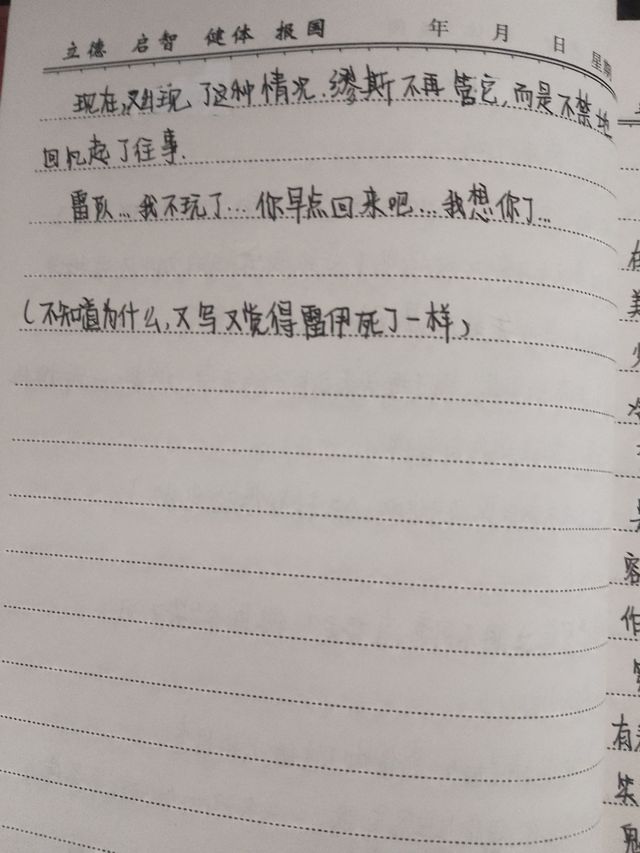 立德 启智 健体 报国 年 月 日 星期
现在,又出现了这种情况.缪斯不再管它,而是不禁地
回忆起了往事.
雷队...我不玩了...你早点回来吧...我想你了...
(不知道为什么,又写又觉得雷伊死了一样)
美
冷
容
作
有
笑
鬼